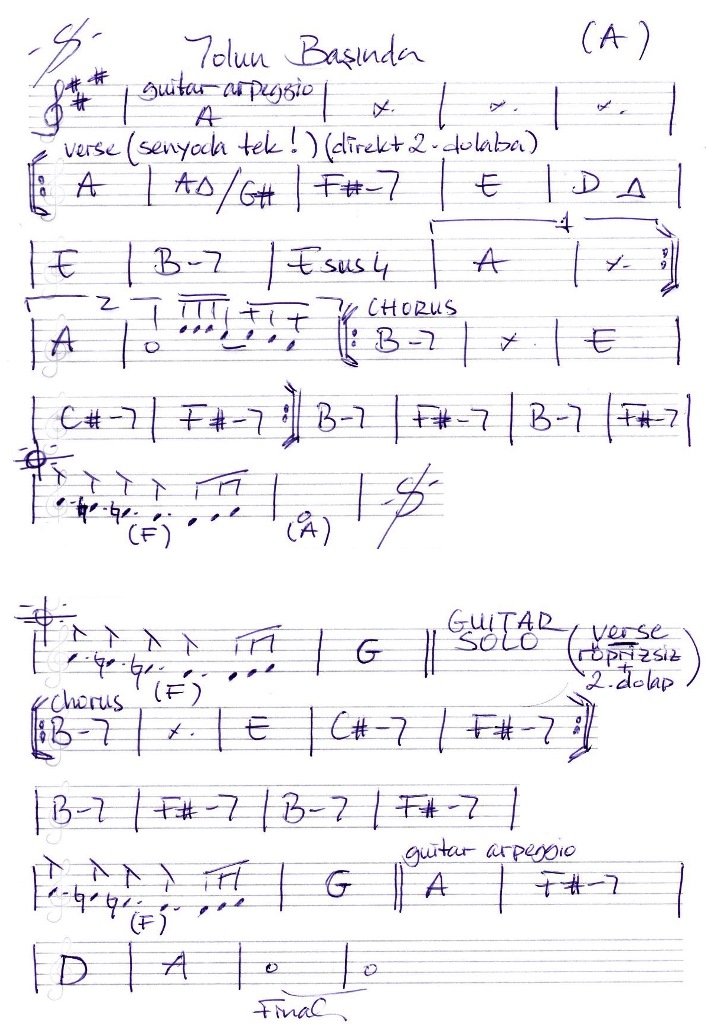 Yolun Başında (A)
guitar arpeggio
A ٪ ٪ ٪
verse (senyoda tek!) (direkt 2. dolaba)
A | A∆/G# | F#-7 | E | D ∆
1
E | B-7 | E sus4 | A | ٪
2 CHORUS
A | B-7 | ٪ | E
C#-7 | F#-7 | B-7 | F#-7 | B-7 | F#-7
(F) (A)
GUITAR SOLO (verse röprizsiz + 2. dolap)
(F) G
chorus
B-7 | ٪ | E | C#-7 | F#-7
B-7 | F#-7 | B-7 | F#-7
guitar arpeggio
(F) G | A | F#-7
D | A
Final